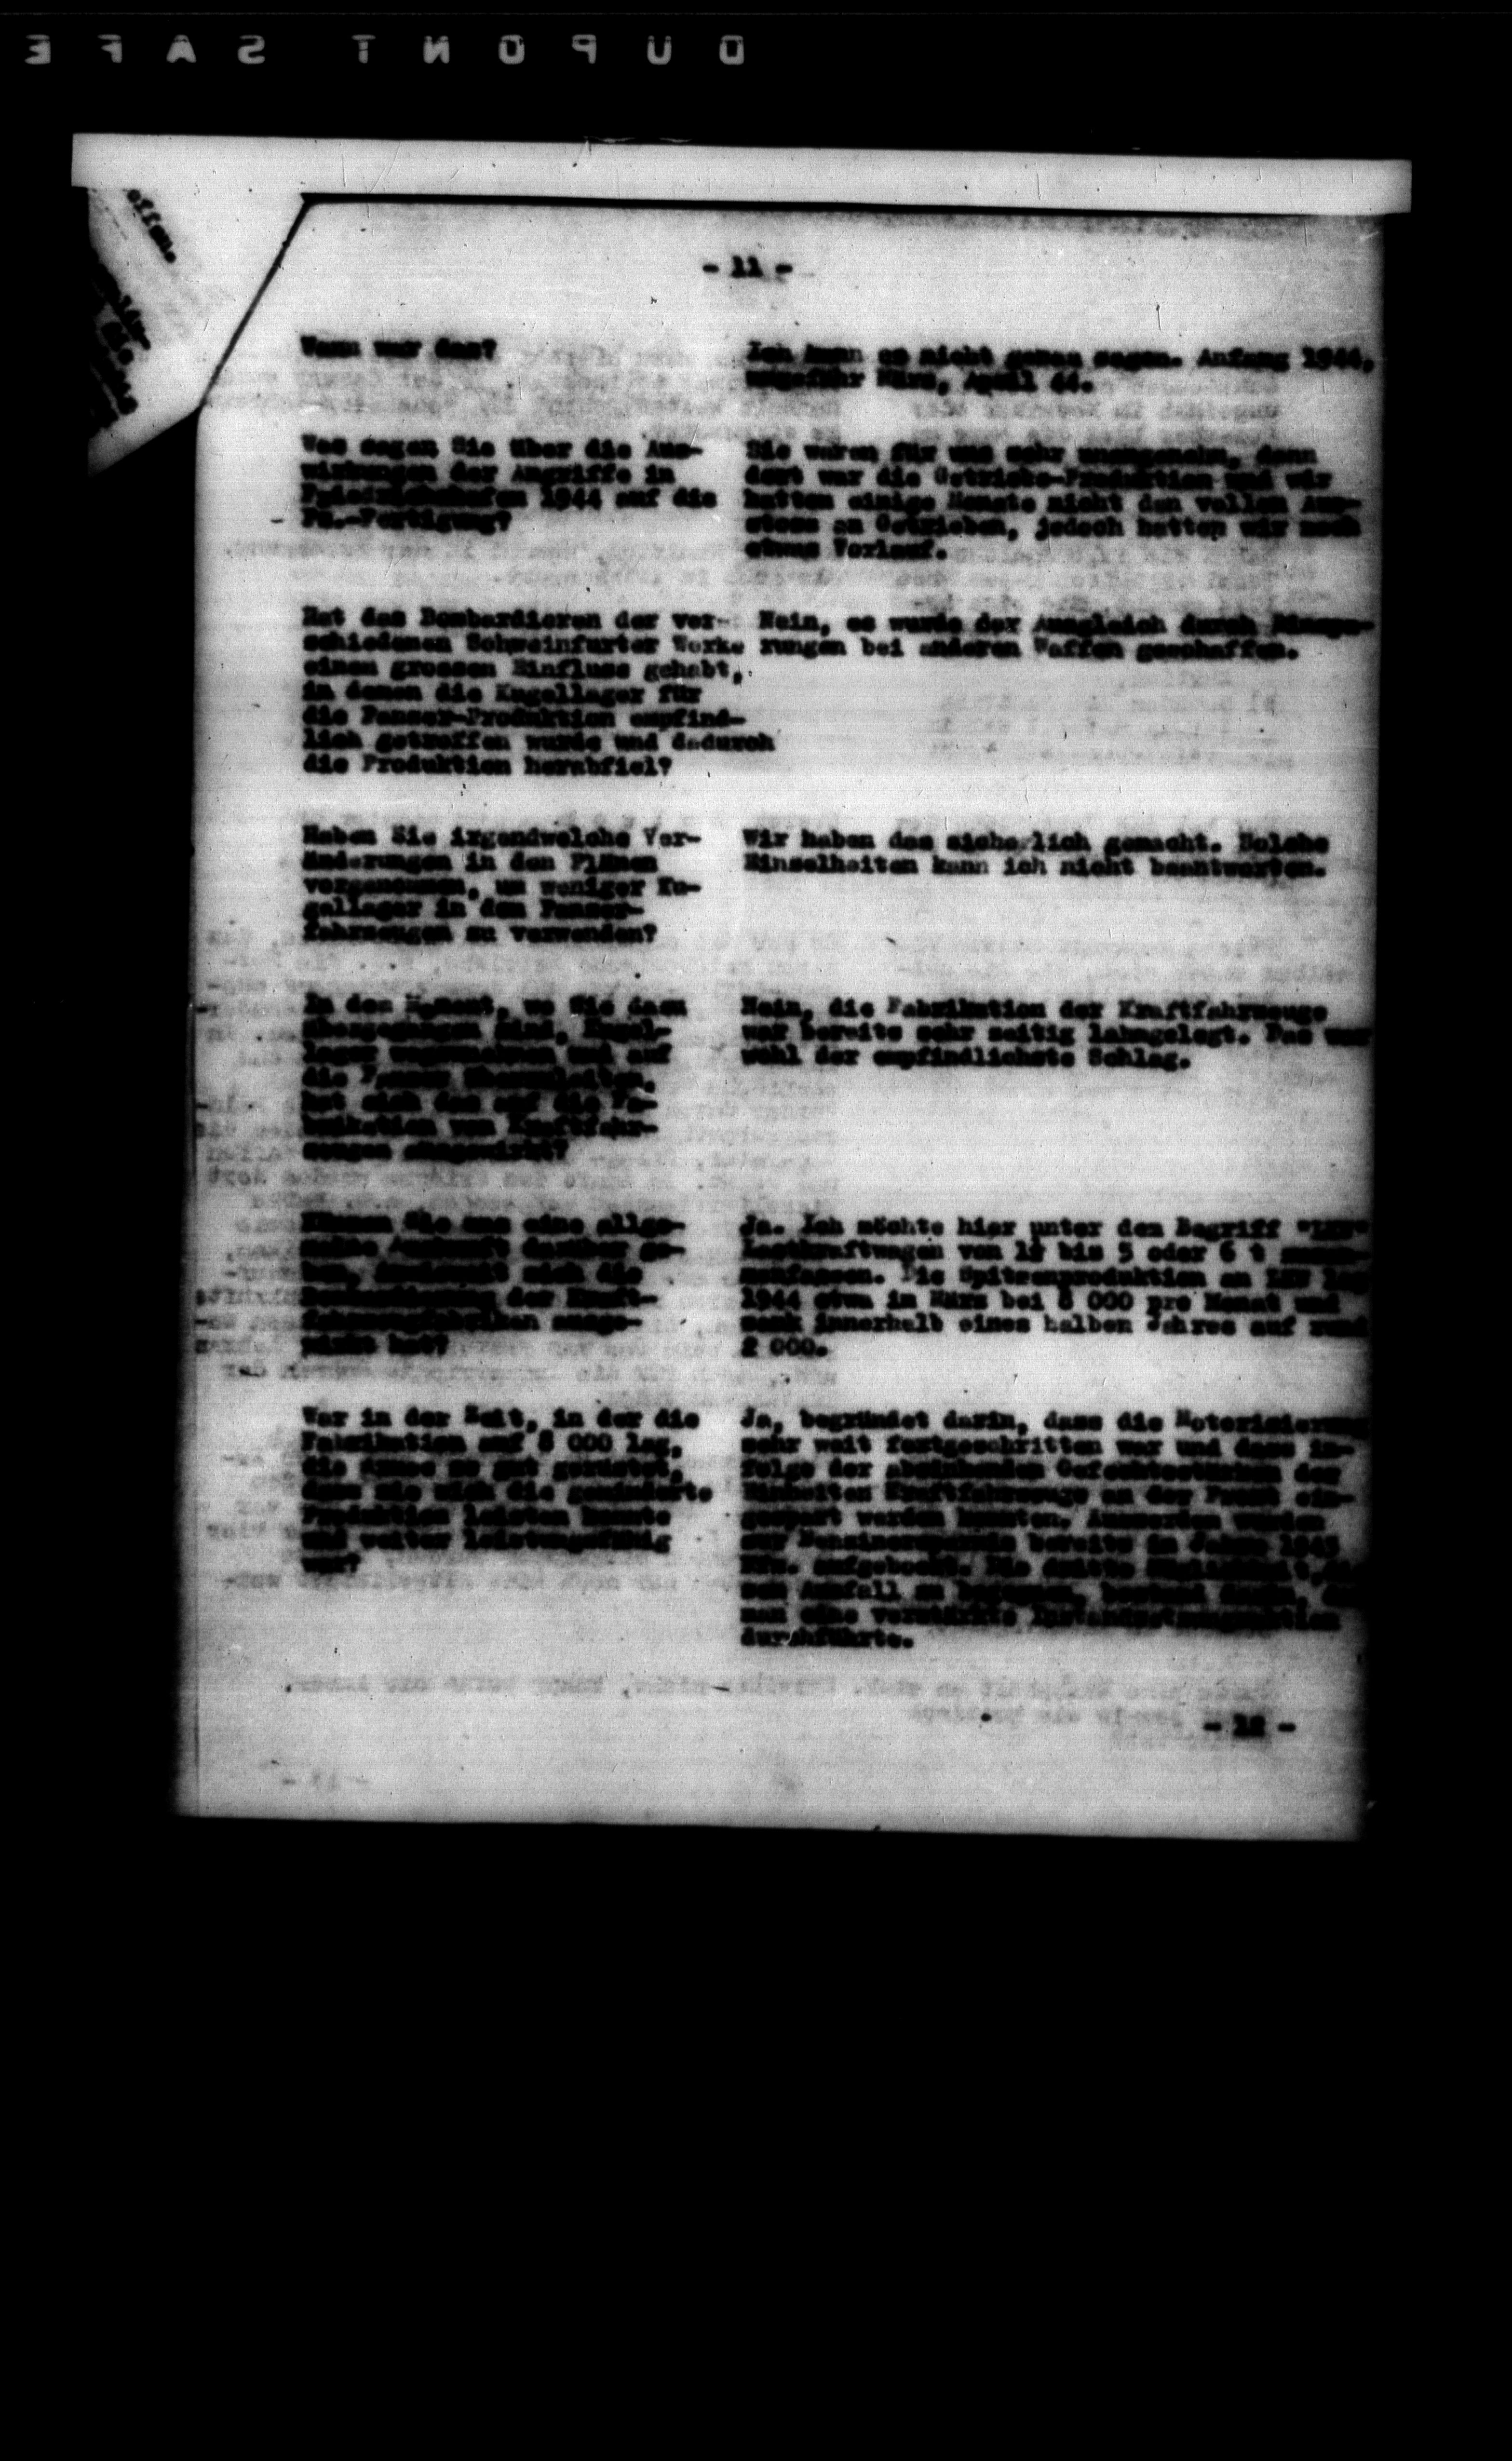 DUPONT SAFE
- 11 -
Wann war das?
Ich kann es nicht genau sagen. Anfang 1944,
ungefähr März, April 44.
Was sagen Sie über die Aus-
wirkungen der Angriffe in
Friedrichshafen 1944 auf die
Pz.-Fertigung?
Sie waren für uns sehr unangenehm, denn
dort war die Getriebe-Produktion und wir
hatten einige Monate nicht den vollen Aus-
stoss an Getrieben, jedoch hatten wir noch
etwas Vorlauf.
Hat das Bombardieren der ver-
schiedenen Schweinfurter Werke
einen grossen Einfluss gehabt,
in denen die Kugellager für
die Panzer-Produktion empfind-
lich getroffen wurde und dadurch
die Produktion herabfiel?
Nein, es wurde der Ausgleich durch
rungen bei anderen Waffen geschaffen.
Haben Sie irgendwelche Ver-
änderungen in den Plänen
vorgenommen, um weniger Ku-
gellager in den Panzer-
fahrzeugen zu verwenden?
Wir haben das sicherlich gemacht. Solche
Einzelheiten kann ich nicht beantworten.
In dem Moment, wo Sie dazu
übergegangen sind, Kugel-
lager wegzunehmen und auf
die Panzer überzuleiten,
hat sich das auf die Fa-
brikation von Kraftfahr-
zeugen ausgewirkt?
Nein, die Fabrikation der Kraftfahrzeuge
war bereits sehr zeitig lahmgelegt. Das war
wohl der empfindlichste Schlag.
Können Sie uns eine allge-
meine Auskunft darüber ge-
ben, inwieweit sich die
Bombardierung der Kraft-
fahrzeugfabriken ausge-
wirkt hat?
Ja. Ich möchte hier unter den Begriff
Lastkraftwagen von 1½ bis 5 oder 6 t zusam-
menfassen. Die Spitzenproduktion an LKW lag
1944 etwa im März bei 8 000 pro Monat und
sank innerhalb eines halben Jahres auf rund
2 000.
War in der Zeit, in der die
Fabrikation auf 8 000 lag,
die Armee so gut gerüstet,
dass sie sich die geminderte
Produktion leisten konnte
und weiter leistungsfähig
war?
Ja, begründet darin, dass die Motorisierung
sehr weit fortgeschritten war und dass in-
folge der absinkenden Gefechtsstärken der
Einheiten Kraftfahrzeuge an der Front ein-
gespart werden konnten. Ausserdem wurden
zur Benzinersparnis bereits im Jahre 1943
Kfz. aufgebockt. Die dritte Möglichkeit,
dem Ausfall zu begegnen, bestand darin,
man eine verstärkte Instandsetzungsaktion
durchführte.
- 12 -